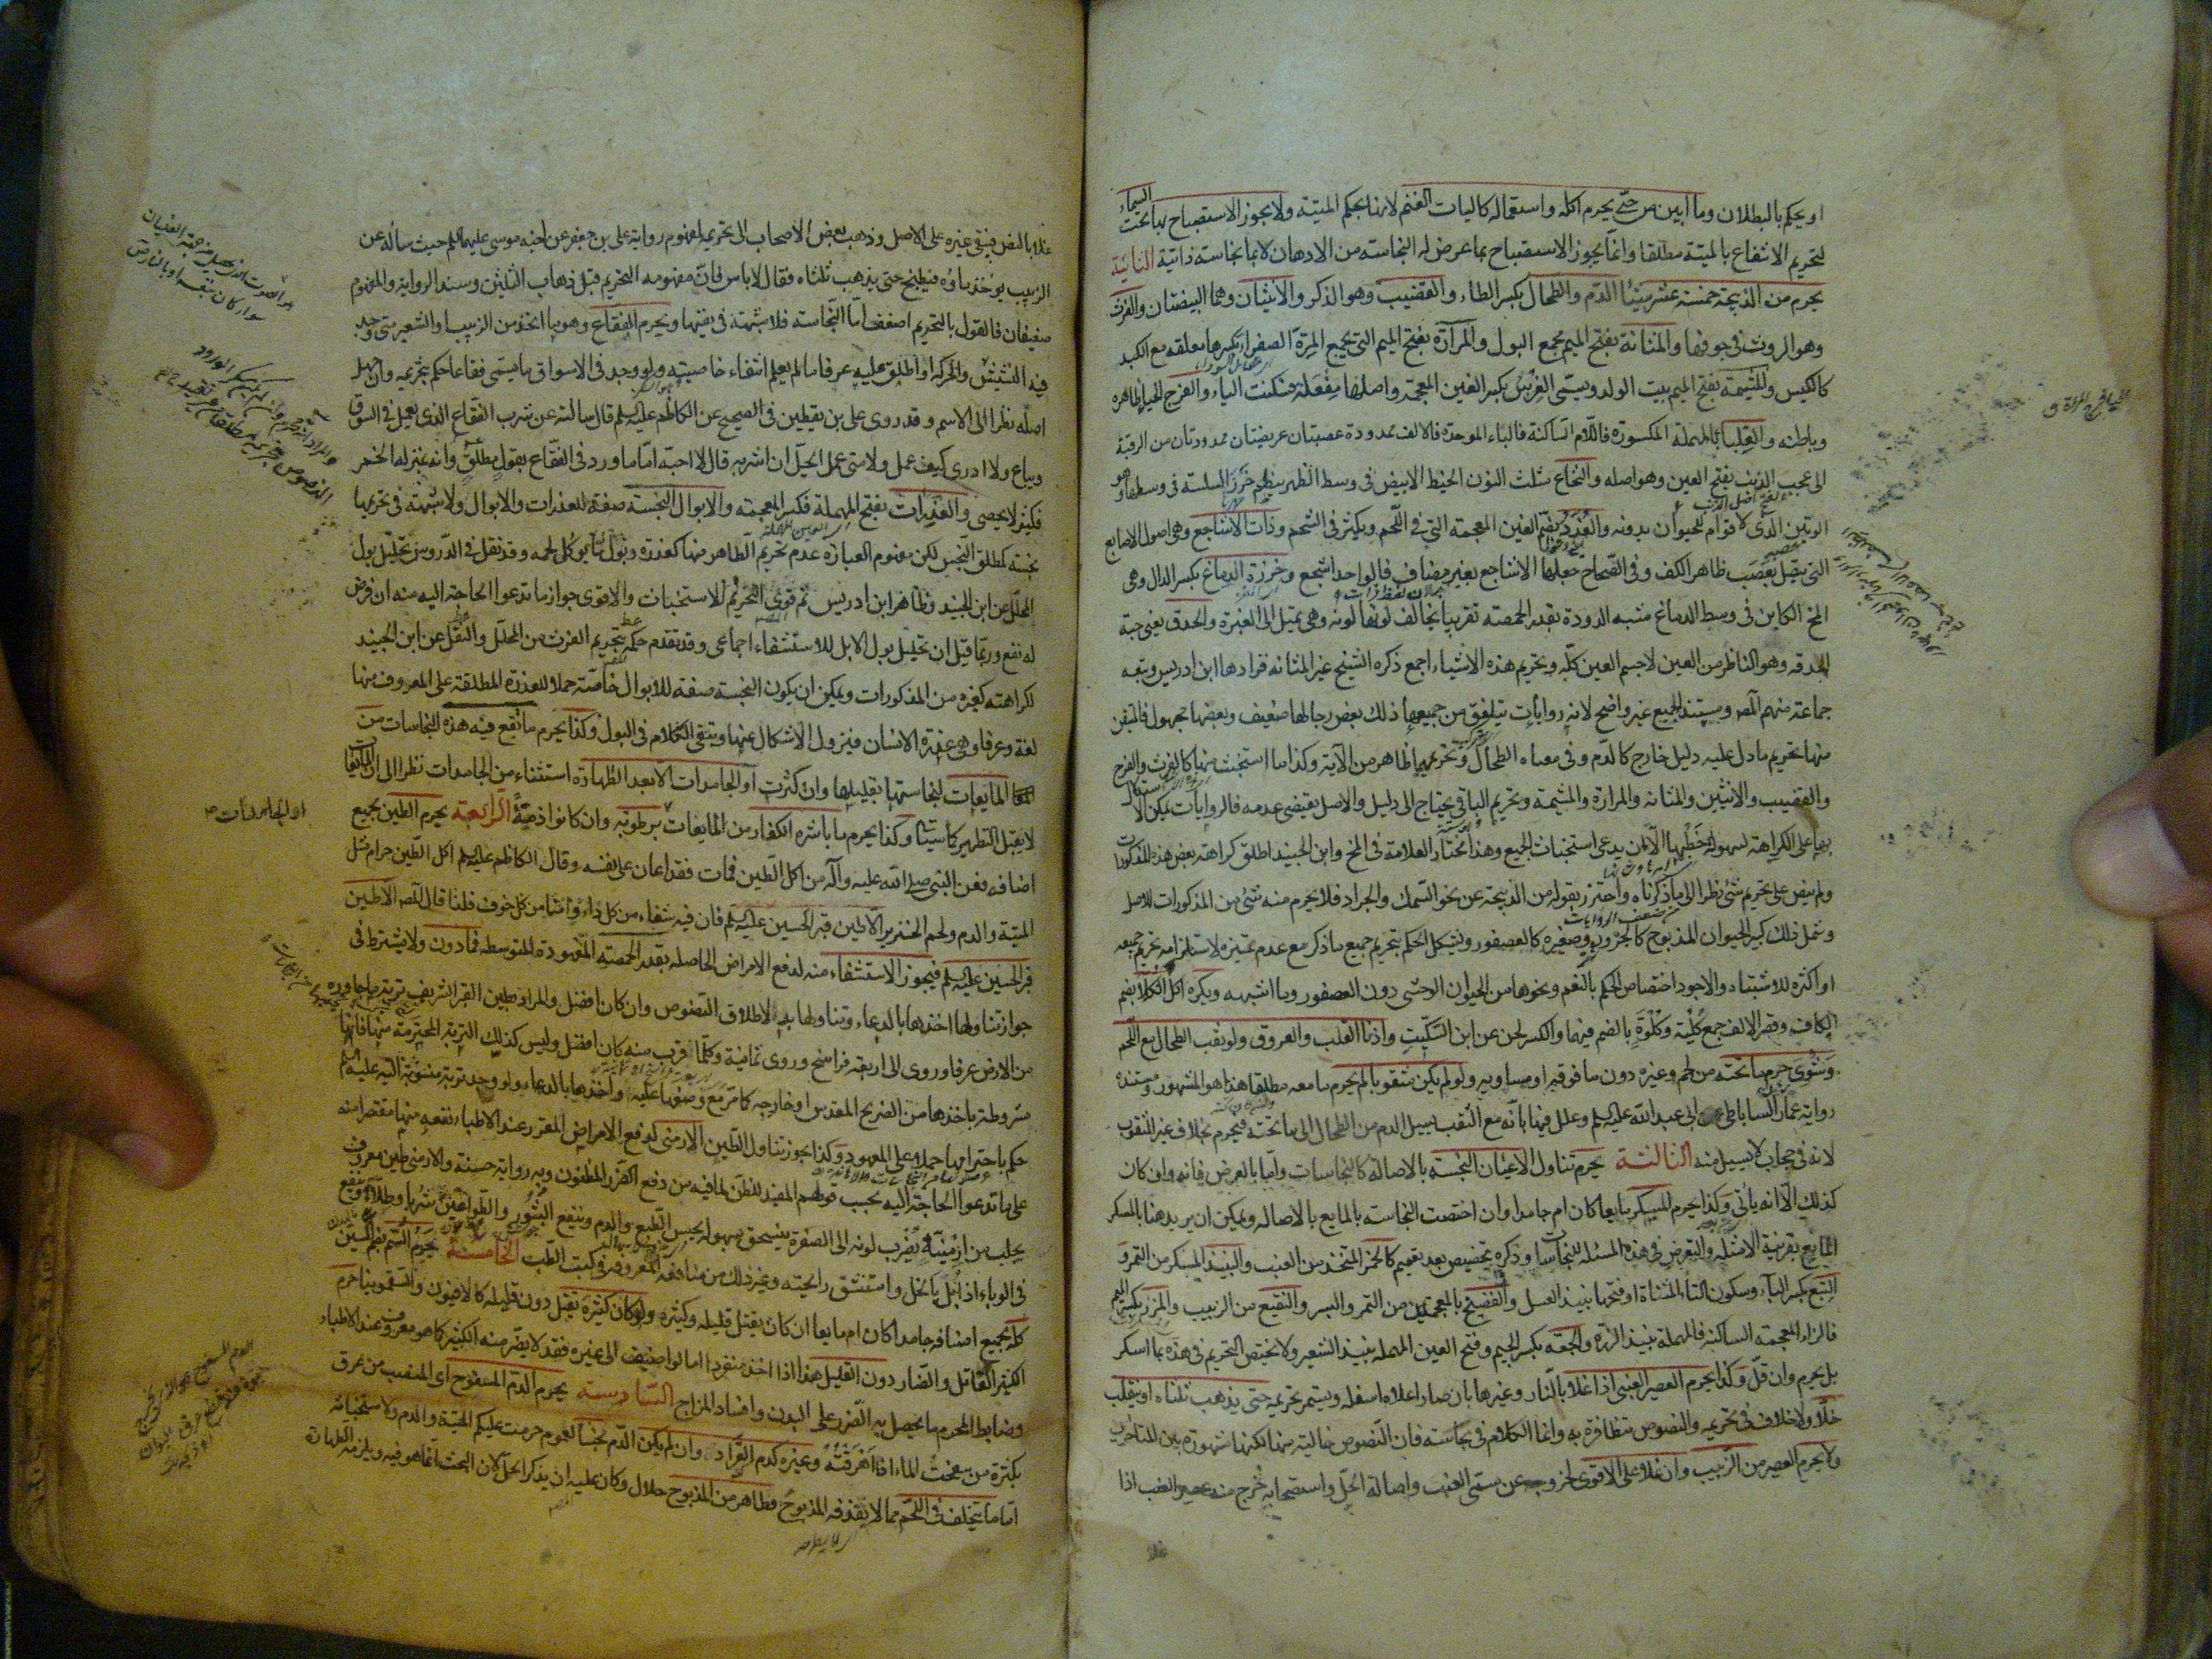 او يحكم بالبطلان وما ابين من حيّ يحرم اكله واستعماله كاليات الغنم لانها بحكم الميتة ولا يجوز الاستصباح بها تحت السماء
لتحريم الانتفاع بالميتة مطلقا وانما يجوز الاستصباح بما عرض له النجاسة من الادهان لا بما نجاسته ذاتية الثانية
يحرم من الذبيحة خمسة عشر شيئا الدم والطحال بكسر الطاء والقضيب وهو الذكر والانثيان وهما البيضتان والفرث
وهو الروث في جوفها والمثانة بفتح الميم مجمع البول والمرارة بفتح الميم التي تجمع المرة الصفراء بكسرها معلقة مع الكبد
كالكيس والمشيمة بفتح الميم بيت الولد ويسمى الغرس بكسر الغين المعجمة واصلها مفعلة فسكنت الياء والفرج الحيا ظاهره
وباطنه والعلباء بالمهملة المكسورة فاللام الساكنة فالباء الموحدة فالالف ممدودة عصبتان عريضتان ممدودتان من الرقبة
الى عجب الذنب بفتح العين وهو اصله والنخاع مثلث النون الخيط الابيض في وسط الظهر ينظم خرز السلسلة في وسطها وهو
الوتين الذي لا قوام للحيوان بدونه والغدد بضم الغين المعجمة التي في اللحم ويكثر في الشحم وذات الاشاجع وهي اصول الاصابع
التي يتصل بعصب ظاهر الكف وفي الصحاح جعلها الاشاجع بغير مضاف فالواحد اشجع وخرزة الدماغ بكسر الدال وهي
المخ الكاين في وسط الدماغ شبه الدودة بقدر الحمصة تقريبا يخالف لونها لونه وهي تميل الى الغبرة والحدق يعني حبة
الحدقة وهو الناظر من العين لا جسم العين كله وتحريم هذه الاشياء اجمع ذكره الشيخ غير المثانة فزادها ابن ادريس وتبعه
جماعة منهم المص ومستند الجميع غير واضح لانه روايات يتلفق من جميعها ذلك بعض رجالها ضعيف وبعضها مجهول فالمتيقن
منها تحريم ما دل عليه دليل خارج كالدم وفي معناه الطحال وتحريمهما ظاهر من الآية وكذا ما استخبث منها كالفرث والفرج
والقضيب والانثيين والمثانة والمرارة والمشيمة وتحريم الباقي يحتاج الى دليل والاصل يقتضي عدمه فالروايات يمكن الاستدلال
بها على الكراهة لسهولة خطبها الا ان يدعى استخباث الجميع وهذا مختار العلامة في المخ وابن الجنيد اطلق كراهة بعض هذه المذكورات
ولم ينص على تحريم شئ نظرا الى ما ذكرناه واحترز بقوله من الذبيحة عن نحو السمك والجراد فلا يحرم منه شئ من المذكورات للاصل
وشمل ذلك كبير الحيوان المذبوح كالجزور وصغيره كالعصفور ويشكل الحكم بتحريم جميع ما ذكر مع عدم تميزه لاستلزامه تحريم جميعه
او اكثره للاشتباه والاجود اختصاص الحكم بالنعم ونحوها من الحيوان الوحشي دون العصفور وما اشبهه ويكره اكل الكلا بضم
الكاف وقصر الالف جمع كلية وكلوة بالضم فيهما والكسر لحن عن ابن السكيت واذنا القلب والعروق ولو ثقب الطحال مع اللحم
وشوى حرم ما تحته من لحم وغيره دون ما فوقه او مساويه ولو لم يكن مثقوبا لم يحرم ما معه مطلقا هذا هو المشهور ومستنده
رواية عمار الساباطي عن ابي عبد الله عليه السلم وعلل فيها بانه مع الثقب يسيل الدم من الطحال الى ما تحته فيحرم بخلاف غير المثقوب
لانه في حجاب لا يسيل منه الثالثة يحرم تناول الاعيان النجسة بالاصالة كالنجاسات واما بالعرض فانه وان كان
كذلك الا انه ياتي وكذا يحرم المسكر مايعا كان ام جامدا وان اختصت النجاسة بالمايع بالاصالة ويمكن ان يريد هنا بالمسكر
المايع بقرينة الامثلة والتعرض في هذه المسئلة للنجاسات وذكره تخصيص بعد تعميم كالخمر المتخذ من العنب والنبيذ المسكر من التمر و
البتع بكسر الباء وسكون التاء المثناة او فتحها نبيذ العسل والفضيخ بالمعجمتين من التمر والبسر والنقيع من الزبيب والمزر بكسر الميم
فالزاء المعجمة الساكنة فالمهملة نبيذ الذرة والجعة بكسر الجيم وفتح العين المهملة نبيذ الشعير ولا يختص التحريم في هذه بما اسكر
بل يحرم وان قل وكذا يحرم العصير العنبي اذا غلا بالنار وغيرها بان صار اعلاه اسفله ويستمر تحريمه حتى يذهب ثلثاه او ينقلب
خلا ولا خلاف في تحريمه والنصوص متظافرة به وانما الكلام في نجاسته فان النصوص خالية منها لكنها مشهورة بين المتاخرين
ولا يحرم العصير من الزبيب وان غلا على الاقوى لخروجه عن مسمى العنب واصالة الحل واستصحابه خرج منه عصير العنب اذا
غلا بالنص فيبقى غيره على الاصل وذهب بعض الاصحاب الى تحريمه لمفهوم رواية علي بن جعفر عن اخيه موسى عليهما السلم حيث ساله عن
الزبيب يؤخذ ماؤه فيطبخ حتى يذهب ثلثاه فقال لا باس فان مفهومه التحريم قبل ذهاب الثلثين وسند الرواية والمفهوم
ضعيفان فالقول بالتحريم اضعف اما النجاسة فلا شبهة في نفيها ويحرم الفقاع وهو ما اتخذ من الزبيب والشعير متى وجد
فيه النشيش والحركة او اطلق عليه عرفا ما لم يعلم انتفاء خاصيته ولو وجد في الاسواق ما يسمى فقاعا حكم بتحريمه وان جهل
اصله نظرا الى الاسم وقد روى علي بن يقطين في الصحيح عن الكاظم عليه السلم قال سالته عن شرب الفقاع الذي يعمل في السوق
ويباع ولا ادري كيف عمل ولا متى عمل ايحل ان اشربه قال لا احبه اما ما ورد في الفقاع بقول مطلق وانه بمنزلة الخمر
فكثير لا يحصى والعذرات بفتح المهملة فكسر المعجمة والابوال النجسة صفة للعذرات والابوال ولا شبهة في تحريمها
نجسة كمطلق النجس لكن مفهوم العبارة عدم تحريم الطاهر منها كعذرة وبول ما يوكل لحمه وقد نقل في الدروس تحليل بول
المحلل عن ابن الجنيد وظاهر ابن ادريس ثم قوى التحريم للاستخباث والاقوى جواز ما تدعوا الحاجة اليه منه ان فرض
له نفع وربما قيل ان تحليل بول الابل للاستشفاء اجماعي وقد تقدم حكمه بتحريم الفرث من المحلل والنقل عن ابن الجنيد
الكراهة كغيره من المذكورات ويمكن ان يكون النجسة صفة للابوال خاصة حملا للعذرة المطلقة على المعروف منها
لغة وعرفا وهي عذرة الانسان فيزول الاشكال عنها ويبقى الكلام في البول وكذا يحرم ما تقع فيه هذه النجاسات من
المايعات لنجاستها بقليلها وان كثرت او الجامدات الا بعد الطهارة استثناء من الجامدات نظرا الى ان المايعات
لا يقبل التطهير كما سيأتي وكذا يحرم ما باشره الكفار من المايعات برطوبة وان كانوا ذمية الرابعة يحرم الطين بجميع
اضافه فعن النبي صلى الله عليه وآله من اكل الطين فمات فقد اعان على نفسه وقال الكاظم عليه السلم اكل الطين حرام مثل
الميتة والدم ولحم الخنزير الا طين قبر الحسين عليه السلم فان فيه شفاء من كل داء وامنا من كل خوف فلذا قال المص الا طين
قبر الحسين عليه السلم فيجوز الاستشفاء منه لدفع الامراض الحاصلة بقدر الحمصة المعهودة المتوسطة فما دون ولا يشترط في
جواز تناولها اخذها بالدعاء وتناولها به لاطلاق النصوص وان كان افضل والمراد بطين القبر الشريف تربة ما جاوره
من الارض عرفا وروي الى اربعة فراسخ وروي ثمانية وكلما قرب منه كان افضل وليس كذلك التربة المحترمة منها فانها
مشروطة باخذها من الضريح المقدس او خارجه كما مر مع وضعها عليه واخذها بالدعاء ولو وجد تربة منسوبة اليه عليه السلم
حكم باحترامها حملا على المعهود وكذا يجوز تناول الطين الارمني لدفع الامراض المقرر عند الاطباء نفعه منها مقتصرا منه
على ما تدعوا الحاجة اليه بحسب قولهم المفيد للظن لما فيه من دفع الضرر المظنون وبه رواية حسنة والارمني طين معروف
يجلب من ارمنية يضرب لونه الى الصفرة ينسحق بسهولة يحبس الطبع والدم وينفع البثور والطواعين شربا وطلاء وينفع
في الوباء اذا بل بالخل واستنشق رايحته وغير ذلك من منافعه المعروفة في كتب الطب الخامسة يحرم السم بضم السين
كله بجميع اصنافه جامدا كان ام مايعا ان كان يقتل قليله وكثيره ولو كان كثيره يقتل دون قليله كالافيون والسقمونيا حرم
الكثير القاتل والضار دون القليل هذا اذا اخذ منفردا اما لو اضيف الى غيره فقد لا يضر منه الكثير كما هو معروف عند الاطباء
وضابط المحرم ما يحصل به الضرر على البدن وافساد المزاج السادسة يحرم الدم المسفوح اى المنصب من عرق
بكثرة من سفحت الماء اذا اهرقته وغيره كدم القراد وان لم يكن الدم نجسا لعموم حرمت عليكم الميتة والدم ولاستخباثه
اما ما يتخلف في اللحم مما لا يقذفه المذبوح فطاهر من المذبوح حلال وكان عليه ان يذكر الحل لان البحث انما هو فيه ويلزمه الطهارة
او الجامدات صح